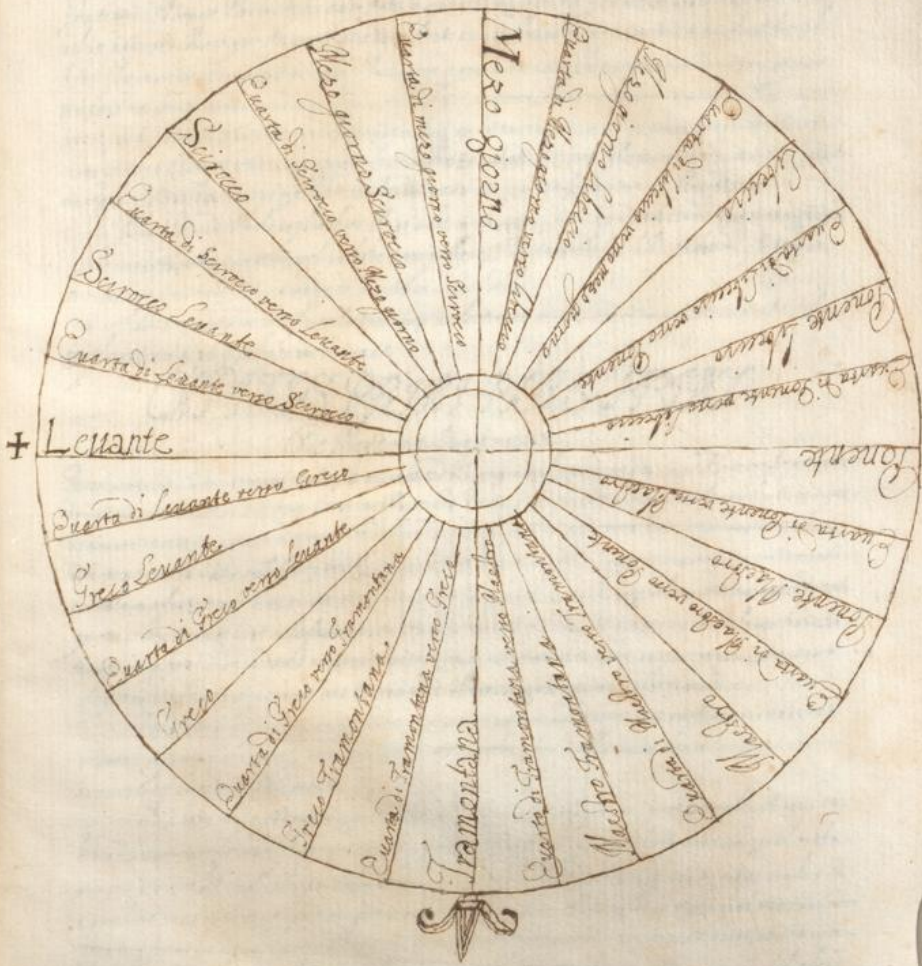 Mezo giorno
Quarta di Mezogiorno verso libeccio
Mezo giorno libeccio
Quarta di libeccio verso mezo giorno
Libeccio
Quarta di libeccio verso Ponente
Ponente libeccio
Quarta di Ponente verso libeccio
Ponente
Quarta di Ponente verso Maestro
Ponente Maestro
Quarta di Maestro verso Ponente
Maestro
Quarta di Maestro verso tramontana
Maestro Tramontana
Quarta di Tramontana verso Maestro
Tramontana
Quarta di Tramontana verso Greco
Greco Tramontana
Quarta di Greco verso Tramontana
Greco
Quarta di Greco verso Leuante
Greco Leuante
Quarta di Leuante verso Greco
+ Leuante
Quarta di Leuante verso Scirocco
Scirocco Leuante
Quarta di Scirocco verso Leuante
Scirocco
Quarta di Scirocco verso Mezogiorno
Mezo giorno Scirocco
Quarta di mezo giorno verso Scirocco